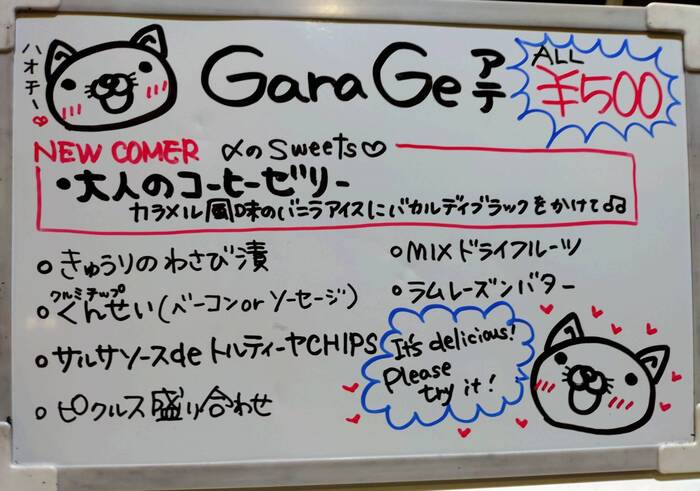 ハオチー
GaraGe アテ
ALL
¥500
NEW COMER 〆のSweets♡
・大人のコーヒーゼリー
カラメル風味のバニラアイスにバカルディブラックをかけて♫
○きゅうりのわさび漬
クルミチップ
○くんせい(ベーコンorソーセージ)
○サルサソースdeトルティーヤCHIPS
○ピクルス盛り合わせ
○MIXドライフルーツ
○ラムレーズンバター
It's delicious!
Please
try it!